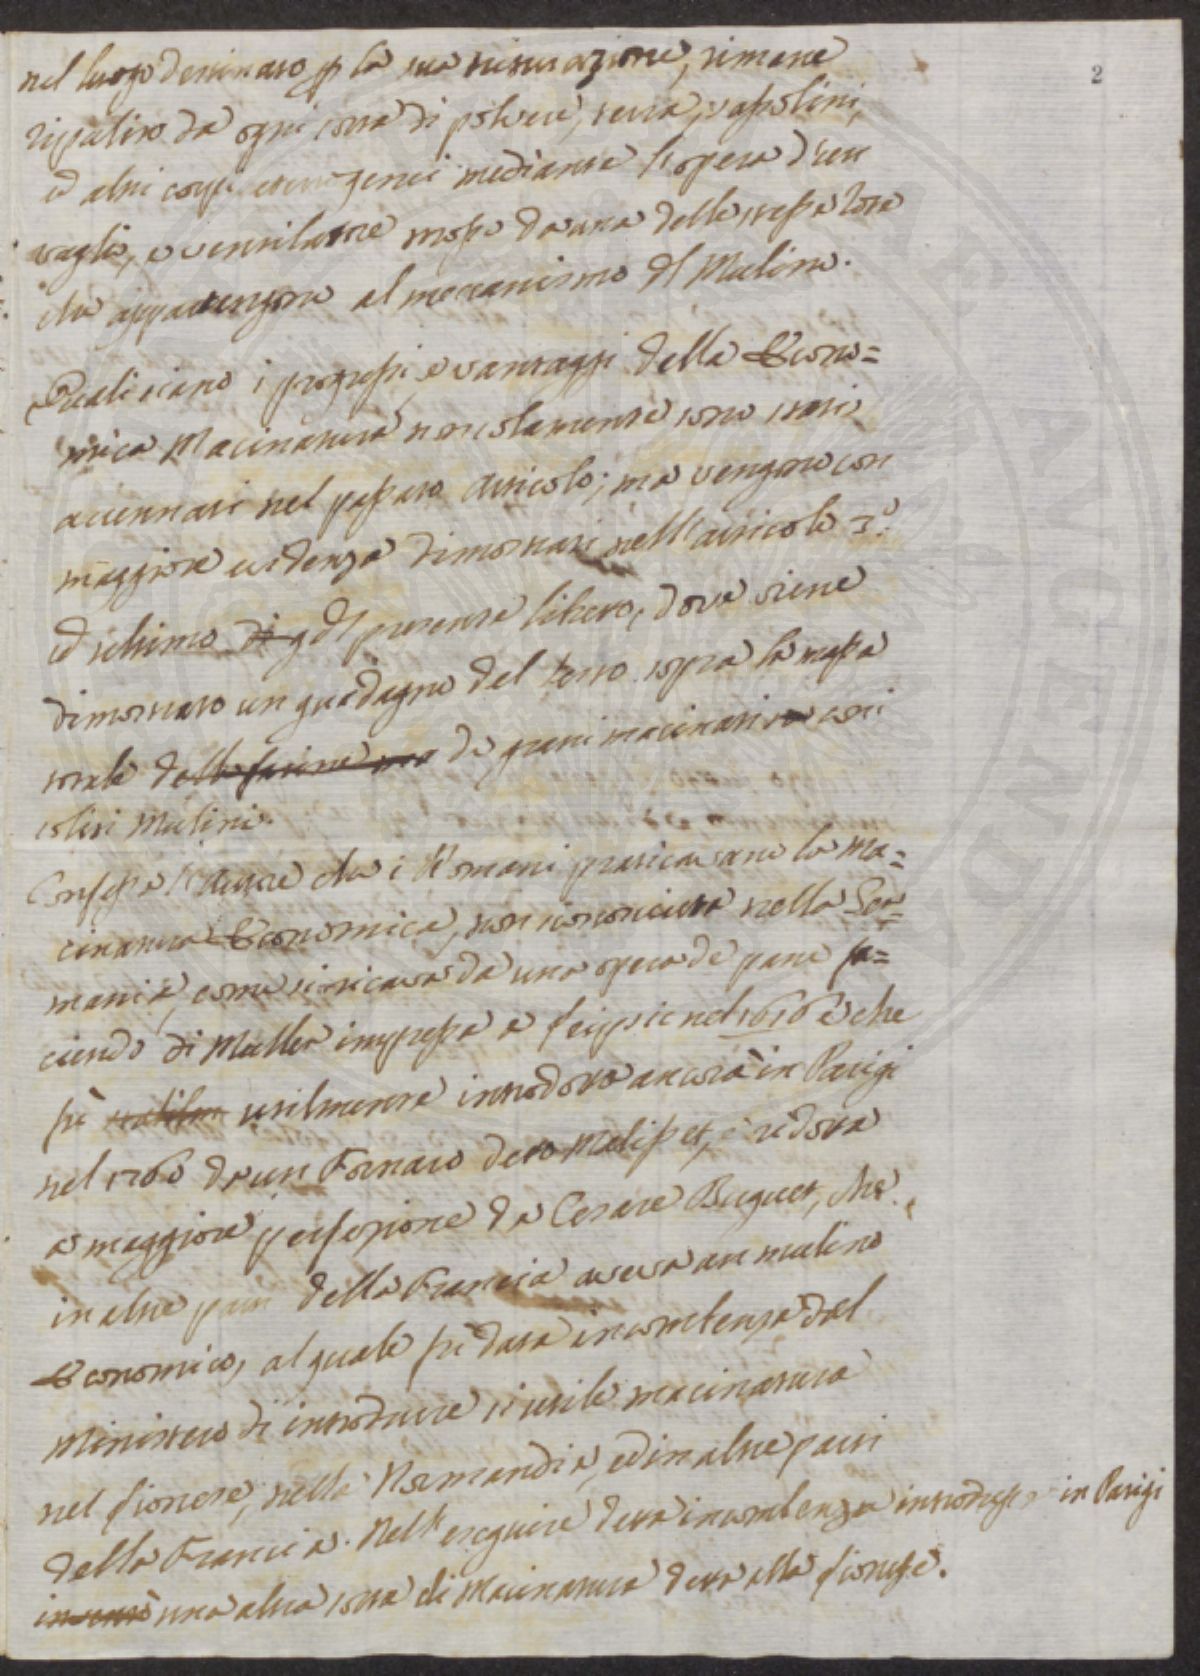 2
nel luogo destinato p la sua ristorazione, rimane
ripulito da ogni sorta di polvere, terra, vapolini,
ed altri corpi eterogenei mediante l'opera d'un
vaglio, e ventilatore mosso da una delle stesse rote
che appartengono al meccanismo del Mulino.
Quali siano i progressi, e vantaggi della Econo=
mica Macinatura non solamente sono stati
accennati nel passato Articolo; ma vengono con
maggiore evidenza dimostrati nell'articolo 3.º
ed ultimo di q del presente libero, dove viene
dimostrato un guadagno del terzo sopra la massa
totale delle farine de grani macinati con i
soliti Mulini.
Confessa l'Autore che i Romani praticavano la Ma=
cinatura Economica, non sconosciuta nella Ger=
mania, come si ricava da una opera de pane fa=
ciendo di Muller impressa a Leipsic nel 1616 e che
fù utilmente introdotta ancora in Parigi
nel 1760 da un Fornaro detto Malisset, e ridotta
a maggiore perfezione da Cesare Buquet, che
in altre parti della Francia aveva un mulino
Economico, al quale fù data incombenza dal
Ministero di introdurre sì utile macinatura
nel Lionese, nella Normandia, ed in altre parti
della Francia. Nell'eseguire detta incombenza introdusse in Parigi
inventò una altra sorta di Macinatura detta alla Lionese.